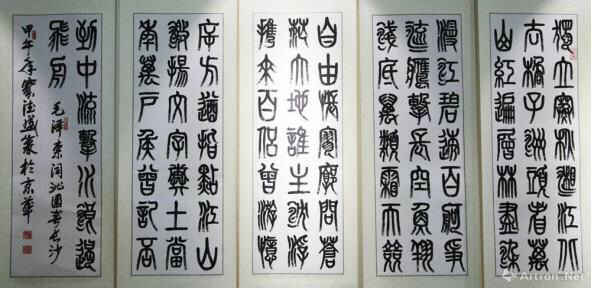 獨立寒秋湘江北
去橘子洲頭看萬
山紅遍層林盡染
漫江碧透百舸爭
流鷹擊長空魚翔
淺底萬類霜天競
自由悵寥廓問蒼
茫大地誰主沉浮
攜來百侶曾游憶
斥方遒指點江山
激揚文字糞土當
年萬戶侯曾記否
到中流擊水浪遏
飛舟
毛澤東詞沁園春長沙
甲午年篆於京華
Artron.Net